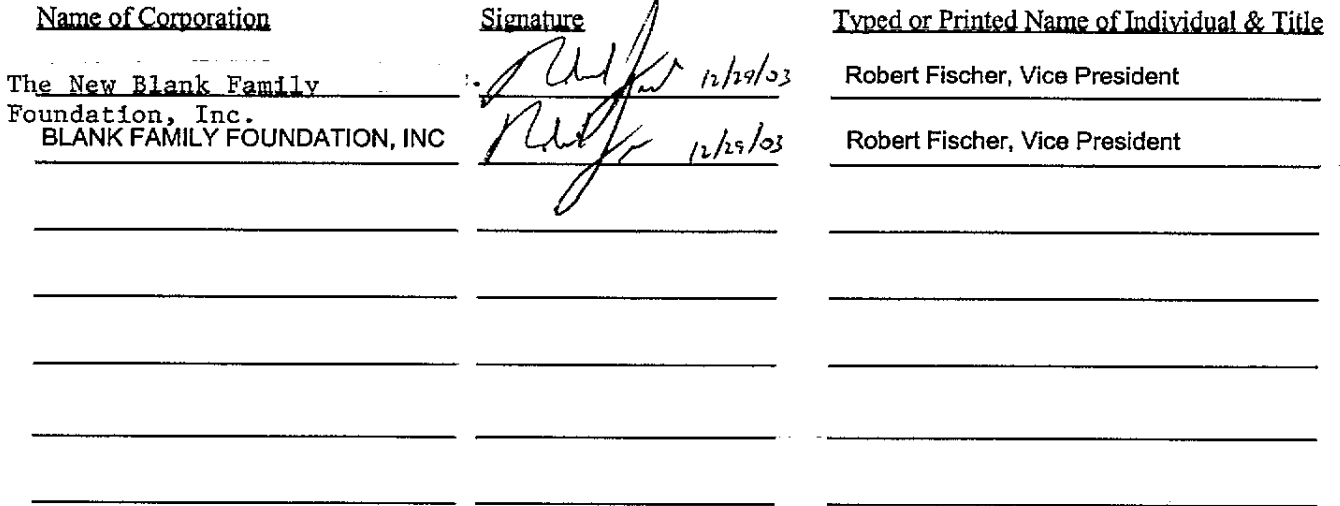 Name of Corporation Signature Typed or Printed Name of Individual & Title
The New Blank Family 12/29/03 Robert Fischer, Vice President
Foundation, Inc.
BLANK FAMILY FOUNDATION, INC 12/29/03 Robert Fischer, Vice President